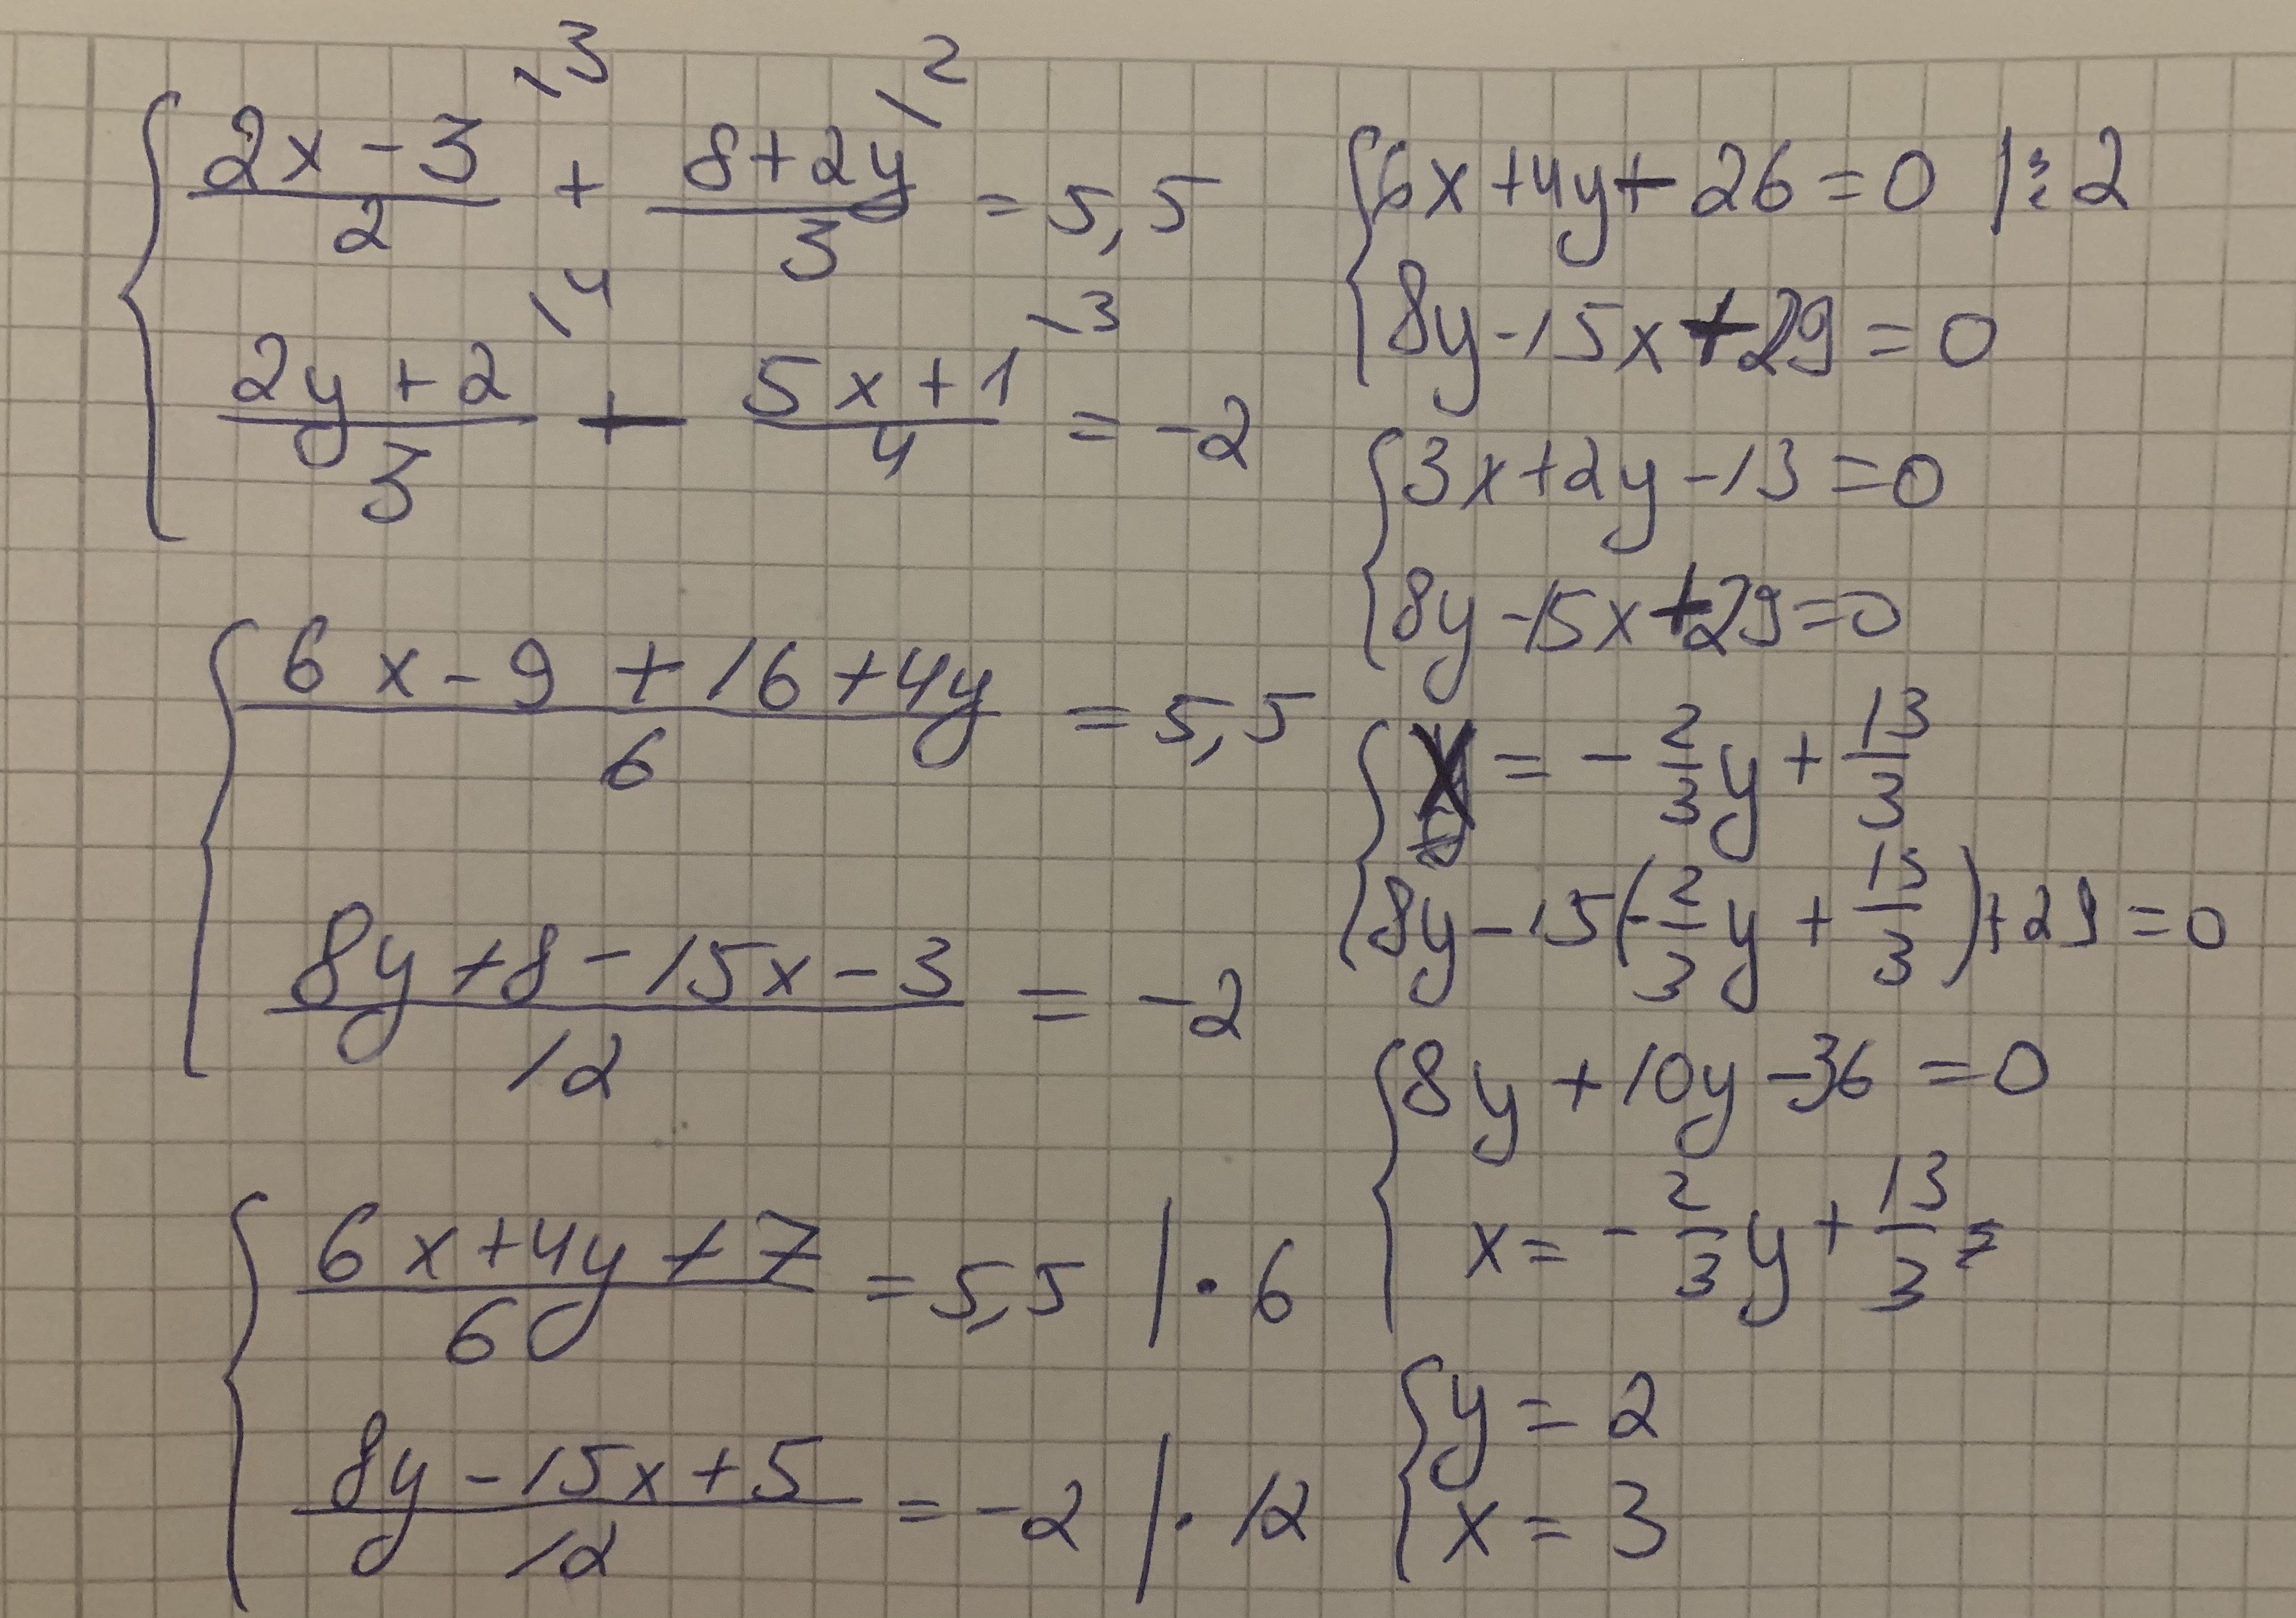 { (2x-3)/2 \3 + (8+2y)/3 \2 = 5,5
(2y+2)/3 \4 - (5x+1)/4 \3 = -2
{ (6x-9+16+4y)/6 = 5,5
(8y+8-15x-3)/12 = -2
{ (6x+4y+7)/6 = 5,5 |·6
(8y-15x+5)/12 = -2 |·12
{ 6x+4y+26=0 |:2
8y-15x+29=0
{ 3x+2y-13=0
8y-15x+29=0
{ x = -2/3y + 13/3
8y-15(-2/3y + 13/3)+29=0
{ 8y+10y-36=0
x = -2/3y + 13/3 =
{ y = 2
x = 3